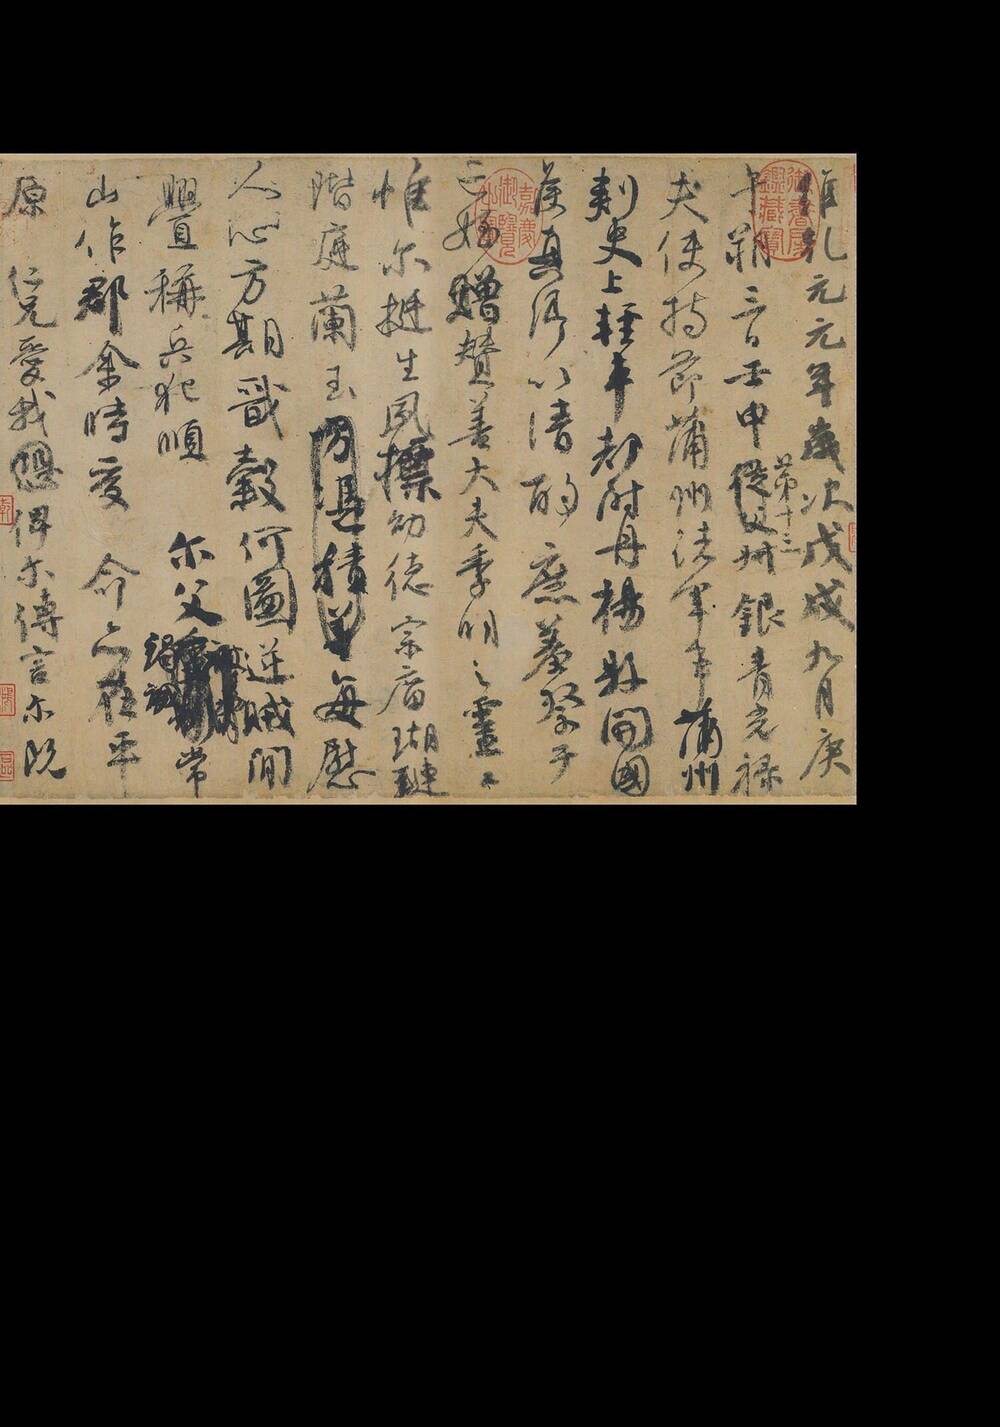 維乾元元年歲次戊戌九月庚
午朔三日壬申第十三從父叔銀青光祿
夫使持節蒲州諸軍事蒲州
刺史上輕車都尉丹楊縣開國
侯真卿以清酌庶羞祭于
亡姪贈贊善大夫季明之靈曰
惟尔挺生夙標幼德宗廟瑚璉
階庭蘭玉方憑積善每慰
人心方期戩穀何圖逆賊間
釁稱兵犯順尔父竭誠常
山作郡余時受命亦在平
原仁兄愛我恐俾尔傳言尔既
嘉慶御覽之寶